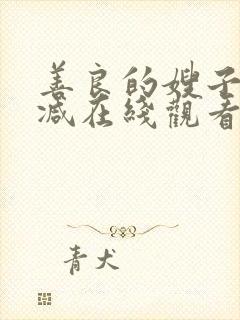 善良的嫂子
减在綫觀看
青犬